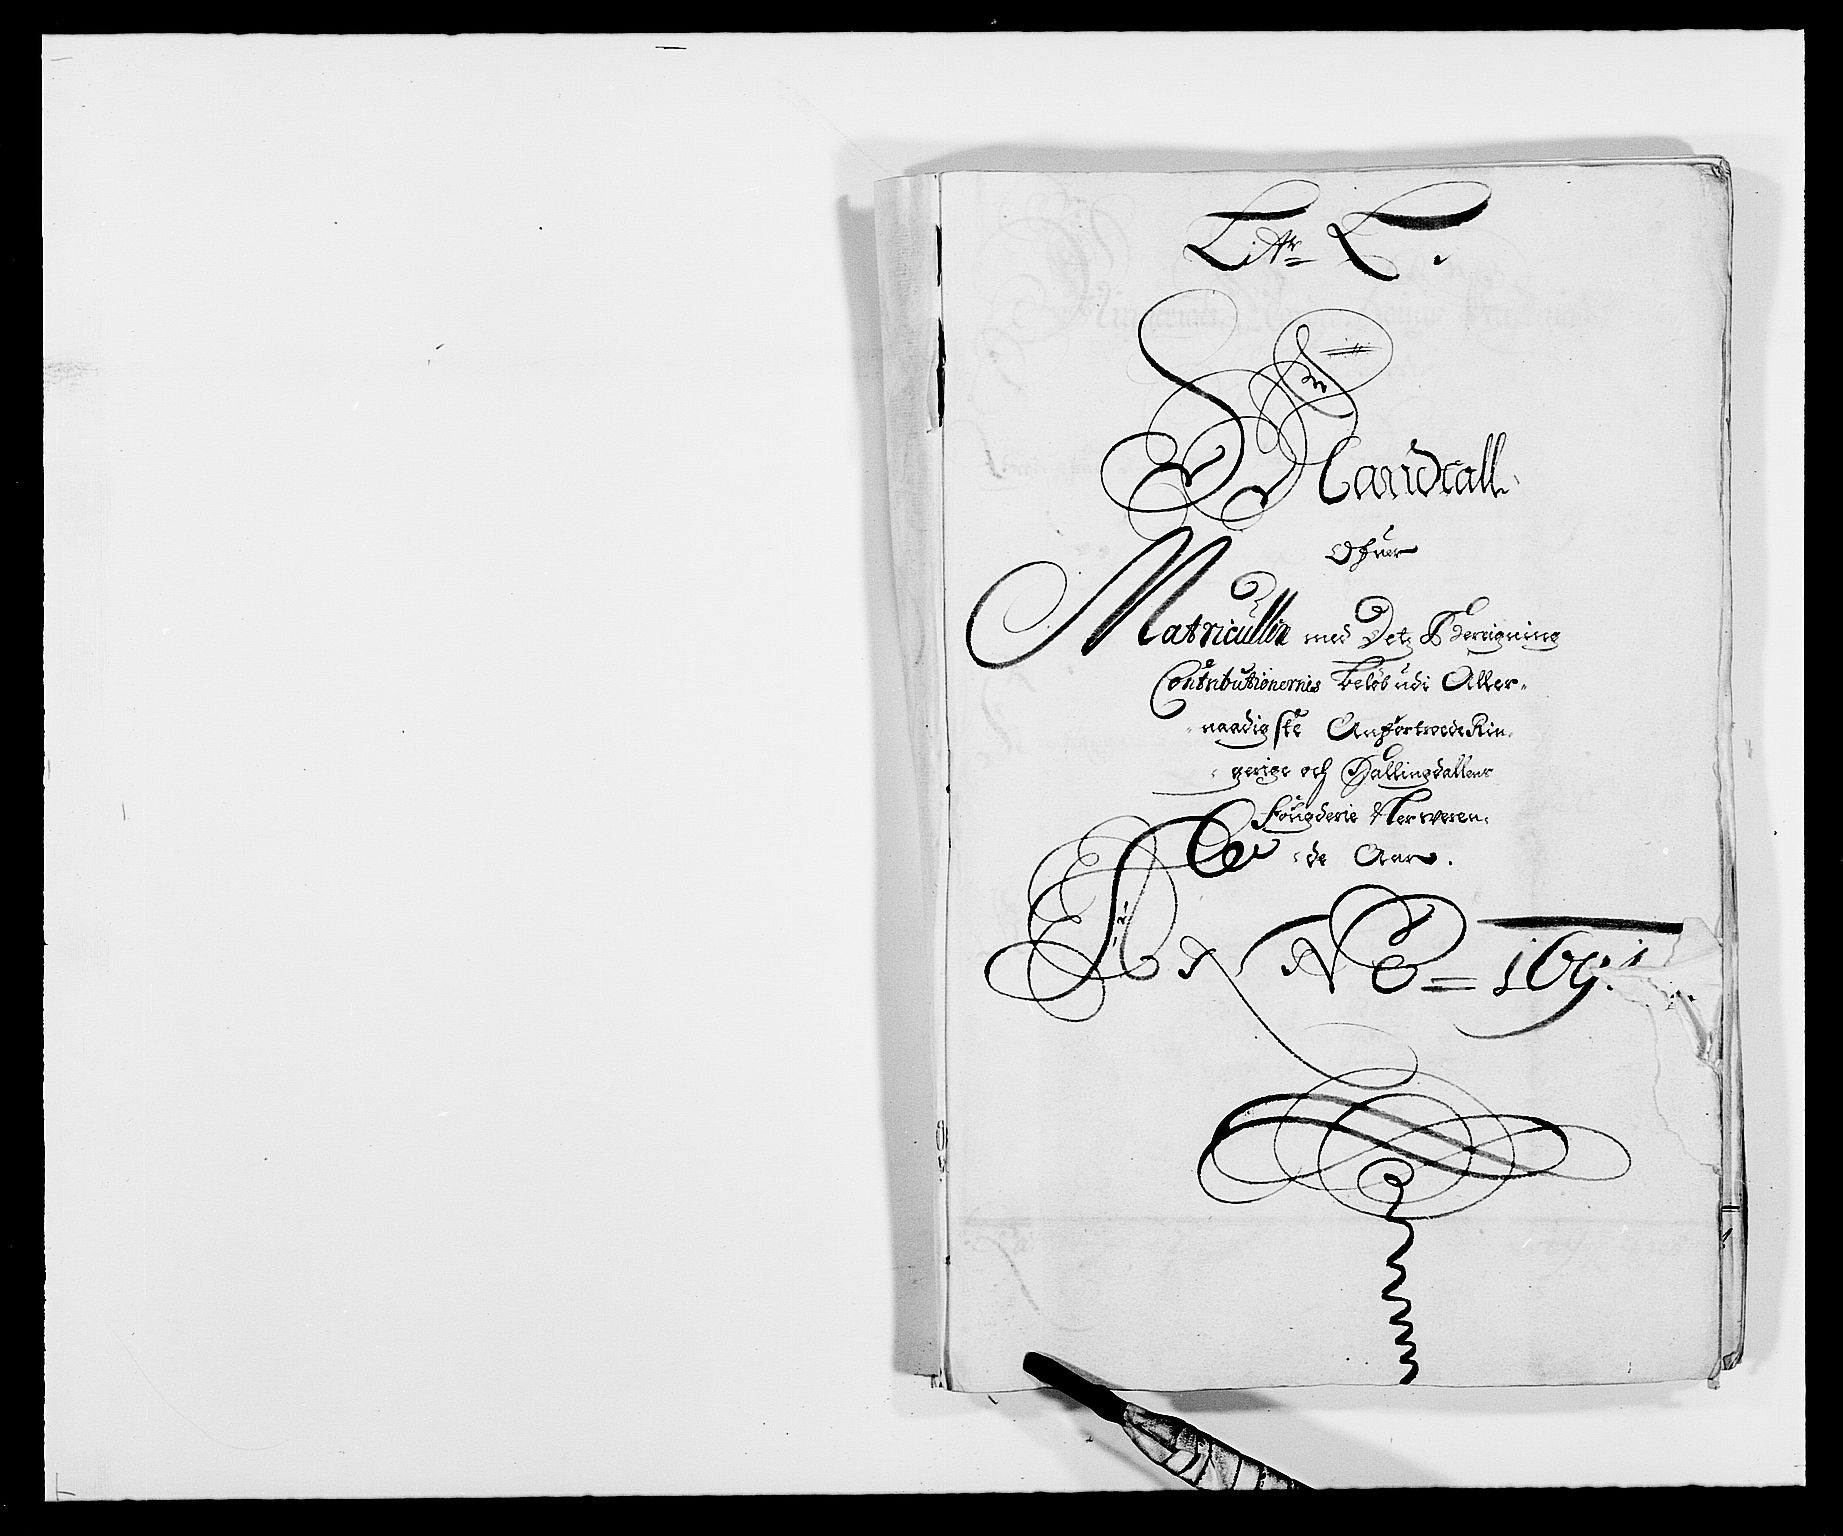 Litr L.
Mandtall
Ofver
Matricullen med Detz Berregning
Contributionernis beløb udi Aller-
naadigste Anfortroede Rin-
gerige och Hallingdallens
Fougderie Nerveren-
de Aar.
ANNO = 1691